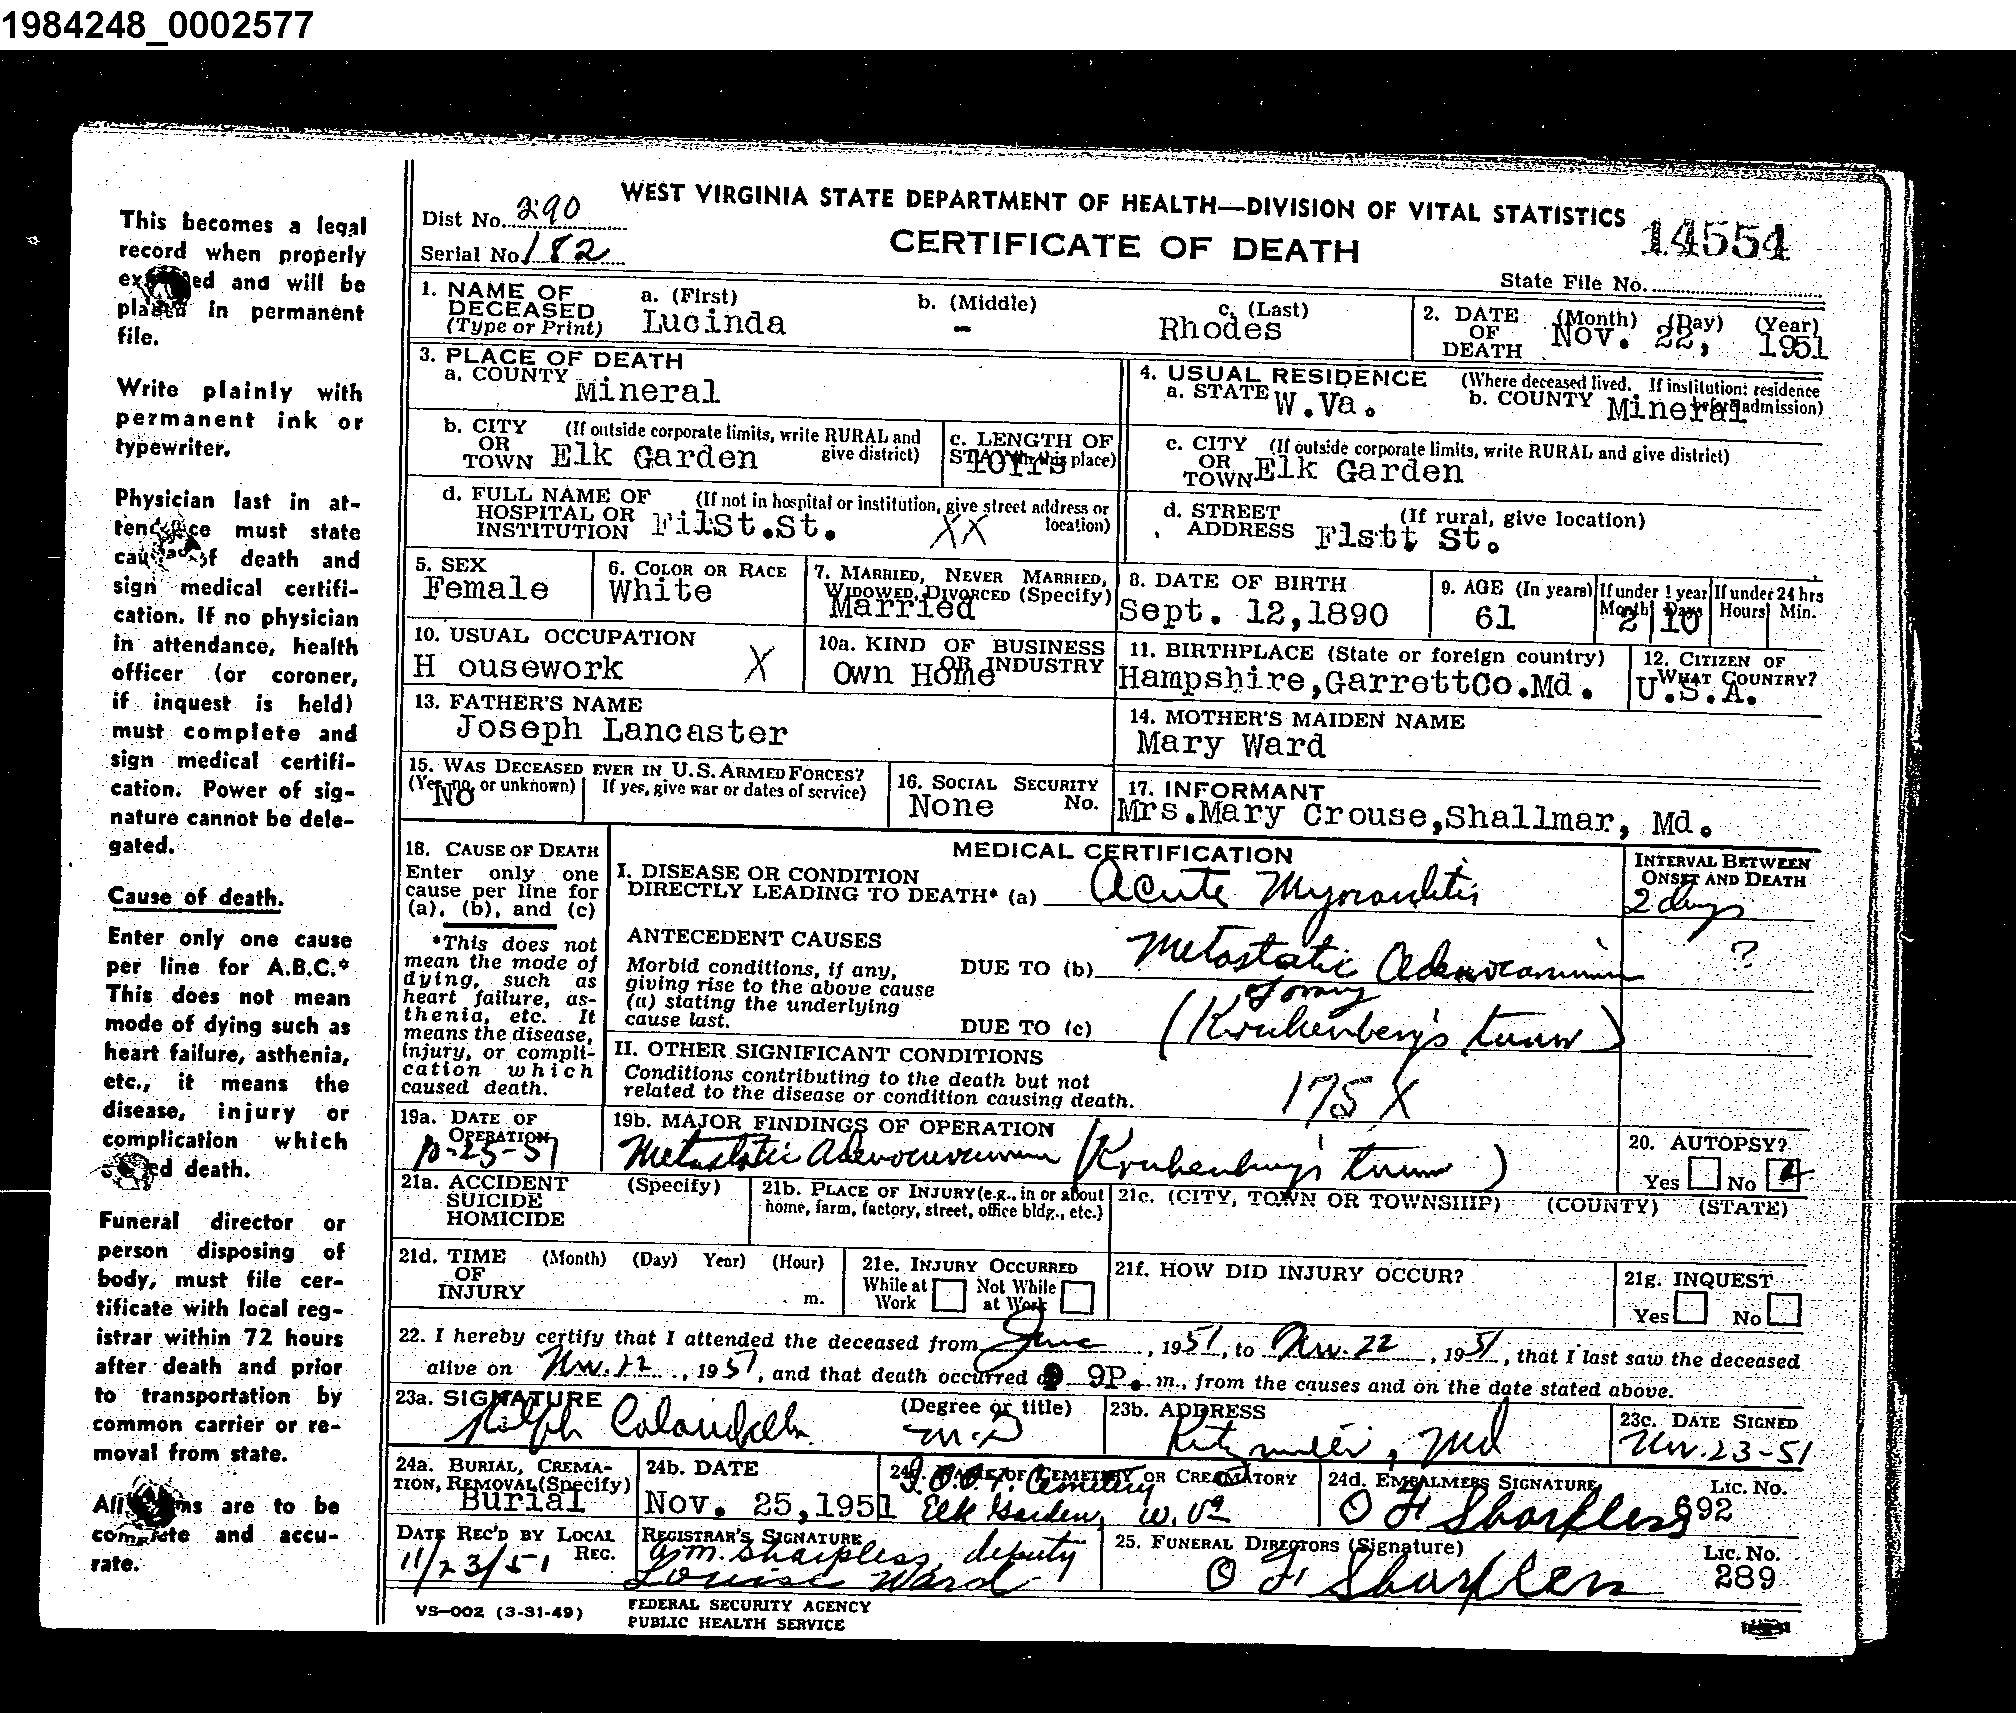 1984248_0002577
This becomes a legal
record when properly
ex ed and will be
placed in permanent
file.
Write plainly with
permanent ink or
typewriter.
Physician last in at-
tendance must state
cause of death and
sign medical certifi-
cation. If no physician
in attendance, health
officer (or coroner,
if inquest is held)
must complete and
sign medical certifi-
cation. Power of sig-
nature cannot be dele-
gated.
Cause of death.
Enter only one cause
per line for A.B.C.*
This does not mean
mode of dying such as
heart failure, asthenia,
etc., it means the
disease, injury or
complication which
caused death.
Funeral director or
person disposing of
body, must file cer-
tificate with local reg-
istrar within 72 hours
after death and prior
to transportation by
common carrier or re-
moval from state.
All items are to be
complete and accu-
rate.
Dist No. 290
Serial No. 182
WEST VIRGINIA STATE DEPARTMENT OF HEALTH—DIVISION OF VITAL STATISTICS
CERTIFICATE OF DEATH
14554
State File No.
1. NAME OF DECEASED (Type or Print) a. (First) Lucinda b. (Middle) - c. (Last) Rhodes
2. DATE OF DEATH (Month) (Day) (Year) Nov. 22, 1951
3. PLACE OF DEATH
a. COUNTY Mineral
4. USUAL RESIDENCE (Where deceased lived. If institution: residence before admission)
a. STATE W.Va. b. COUNTY Mineral
b. CITY OR TOWN (If outside corporate limits, write RURAL and give district) Elk Garden
c. LENGTH OF STAY (in this place) 10Yrs
c. CITY OR TOWN (If outside corporate limits, write RURAL and give district) Elk Garden
d. FULL NAME OF HOSPITAL OR INSTITUTION (If not in hospital or institution, give street address or location) St. XX
d. STREET ADDRESS (If rural, give location) St.
5. SEX Female
6. COLOR OR RACE White
7. MARRIED, NEVER MARRIED, WIDOWED, DIVORCED (Specify) Married
8. DATE OF BIRTH Sept. 12,1890
9. AGE (In years) 61 If under 1 year Months 2 Days 10 If under 24 hrs Hours Min.
10. USUAL OCCUPATION H ousework X
10a. KIND OF BUSINESS OR INDUSTRY Own Home
11. BIRTHPLACE (State or foreign country) Hampshire,GarrettCo.Md.
12. CITIZEN OF WHAT COUNTRY? U.S.A.
13. FATHER'S NAME Joseph Lancaster
14. MOTHER'S MAIDEN NAME Mary Ward
15. WAS DECEASED EVER IN U.S. ARMED FORCES? (Yes, no, or unknown) No If yes, give war or dates of service)
16. SOCIAL SECURITY No. None
17. INFORMANT Mrs.Mary Crouse,Shallmar, Md.
18. CAUSE OF DEATH
Enter only one
cause per line for
(a), (b), and (c)
*This does not
mean the mode of
dying, such as
heart failure, as-
thenia, etc. It
means the disease,
injury, or compli-
cation which
caused death.
MEDICAL CERTIFICATION
INTERVAL BETWEEN ONSET AND DEATH
I. DISEASE OR CONDITION
DIRECTLY LEADING TO DEATH* (a) Acute Myocarditis 2 days
ANTECEDENT CAUSES
Morbid conditions, if any,
giving rise to the above cause
(a) stating the underlying
cause last.
DUE TO (b) Metastatic Adenocarcinoma ?
DUE TO (c) (Krukenberg's tumor)
II. OTHER SIGNIFICANT CONDITIONS
Conditions contributing to the death but not
related to the disease or condition causing death.
175 X
19a. DATE OF OPERATION 10-25-51
19b. MAJOR FINDINGS OF OPERATION Metastatic Adenocarcinoma (Krukenberg's tumor)
20. AUTOPSY? Yes No
21a. ACCIDENT SUICIDE HOMICIDE (Specify)
21b. PLACE OF INJURY (e.g., in or about home, farm, factory, street, office bldg., etc.)
21c. (CITY, TOWN OR TOWNSHIP) (COUNTY) (STATE)
21d. TIME OF INJURY (Month) (Day) Year) (Hour) m.
21e. INJURY OCCURRED While at Work Not While at Work
21f. HOW DID INJURY OCCUR?
21g. INQUEST Yes No
22. I hereby certify that I attended the deceased from June, 1951, to Nov. 22, 1951, that I last saw the deceased
alive on Nov. 22, 1951, and that death occurred 9P. m., from the causes and on the date stated above.
23a. SIGNATURE Ralph Calandrella (Degree or title) M.D
23b. ADDRESS Kitzmiller, Md
23c. DATE SIGNED Nov. 23-51
24a. BURIAL, CREMATION, REMOVAL (Specify) Burial
24b. DATE Nov. 25,1951
24c. NAME OF CEMETERY OR CREMATORY I.O.O.F. Cemetery Elk Garden, W. Va
24d. EMBALMERS SIGNATURE O F Sharpless Lic. No. 892
DATE REC'D BY LOCAL REG. 11/23/51
REGISTRAR'S SIGNATURE m. Sharpless, deputy
Louise Ward
25. FUNERAL DIRECTORS (Signature) O F Sharpless Lic. No. 289
VS—002 (3-31-49)
FEDERAL SECURITY AGENCY
PUBLIC HEALTH SERVICE